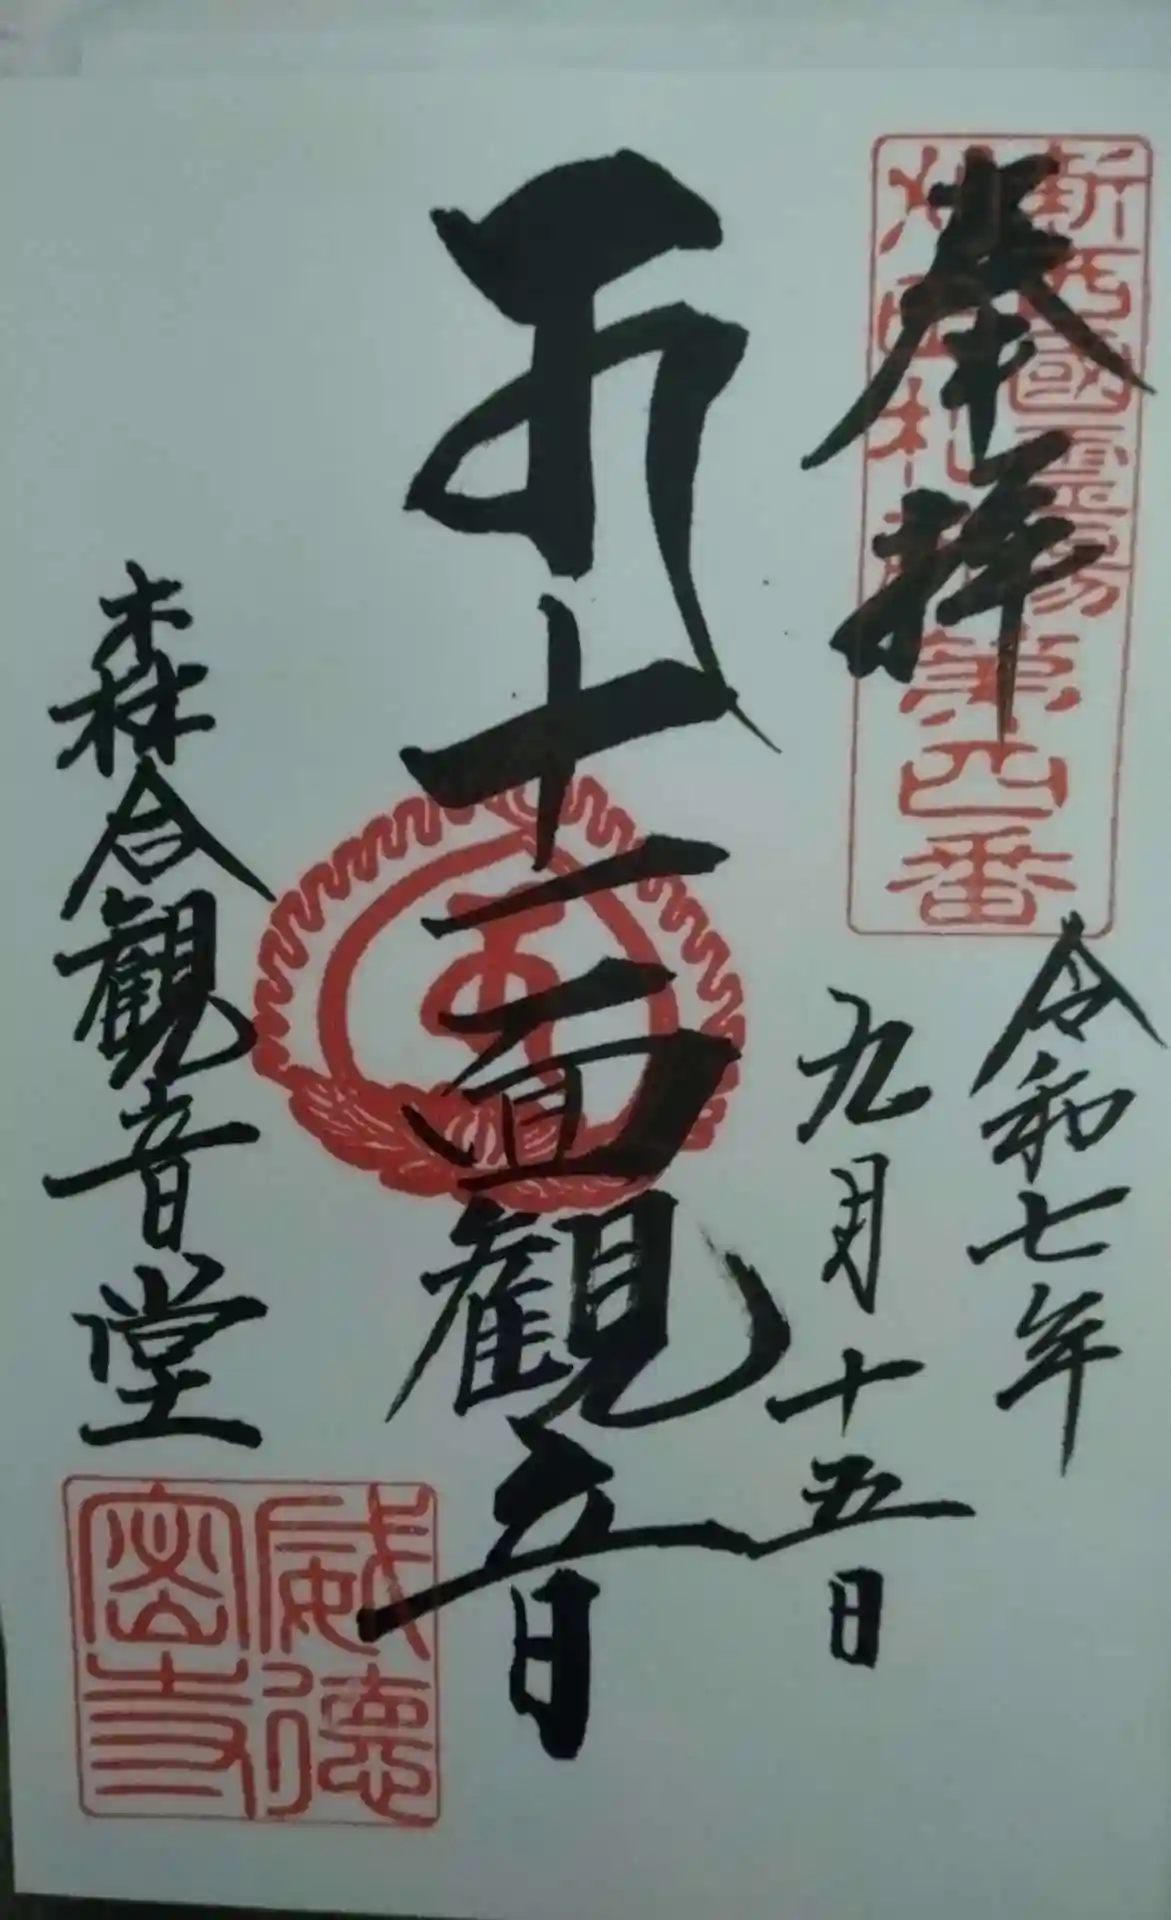 奉拝
新西國霊場
外四札所
第四番
令和七年
九月十五日
十一面観音
森合観音堂
威徳
密寺